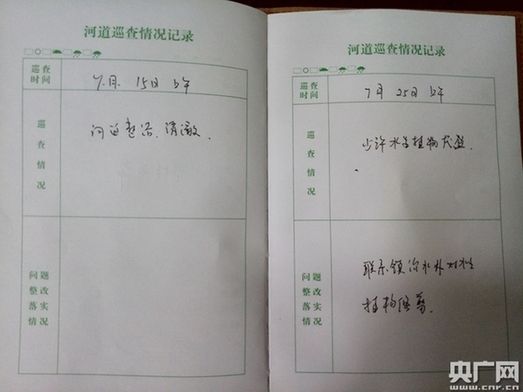 河道巡查情况记录
巡查
时间
7月 15日 上午
巡
查
情
况
河道整洁、清澈
问题
整改
落实
情况
河道巡查情况记录
巡查
时间
7月 25日 上午
巡
查
情
况
少许水生植物
问题
整改
落实
情况
联系镇治水办对水生
植物
央广网
www.cnr.cn